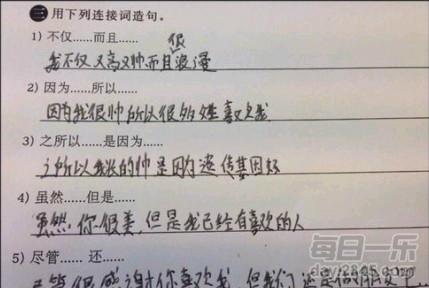 三 用下列连接词造句。
1) 不仅……而且……
我不仅又高又帅而且很浪漫
2) 因为……所以……
因为我很帅所以很多女生喜欢我
3) 之所以……是因为……
之所以我长的帅是因为遗传基因好
4) 虽然……但是……
虽然你很美,但是我已经有喜欢的人
5) 尽管…… 还……
尽管很感谢你喜欢我,但我们还是做朋友
每日一乐
day.2345.com